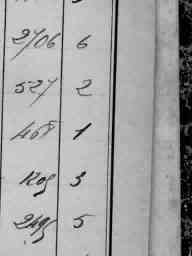 2706 6
527 2
468 1
1205 3
2495 5